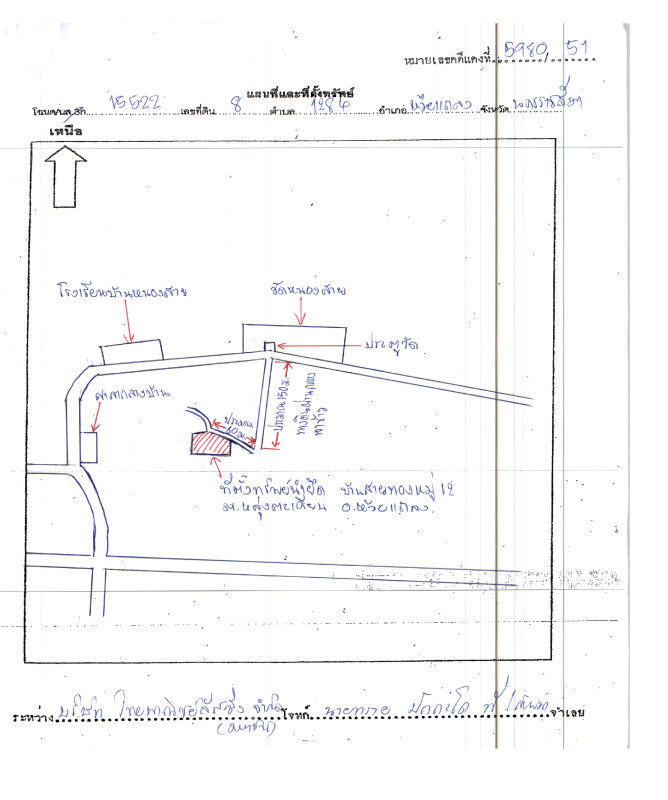 หมายเลขคดีแดงที่ 5980/51
แผนที่และที่ตั้งทรัพย์
โฉนด/น.ส.3ก. 15522 เลขที่ดิน 8 ตำบล 1284 อำเภอ ห้วยแถลง จังหวัด นครราชสีมา
เหนือ
โรงเรียนบ้านหนองสาย
วัดหนองสาย
ประตูวัด
ศาลากลางบ้าน
ประมาณ 60 ม.
ประมาณ 150 ม.
ที่ตั้งทรัพย์นำยึด บ้านสายทองหมู่ 12
ต.หลุ่งตะเคียน อ.ห้วยแถลง
ระหว่าง บริษัท ไทยพาณิชย์ลีสซิ่ง จำกัด โจทก์ นายทราย จำเลย
(มหาชน)